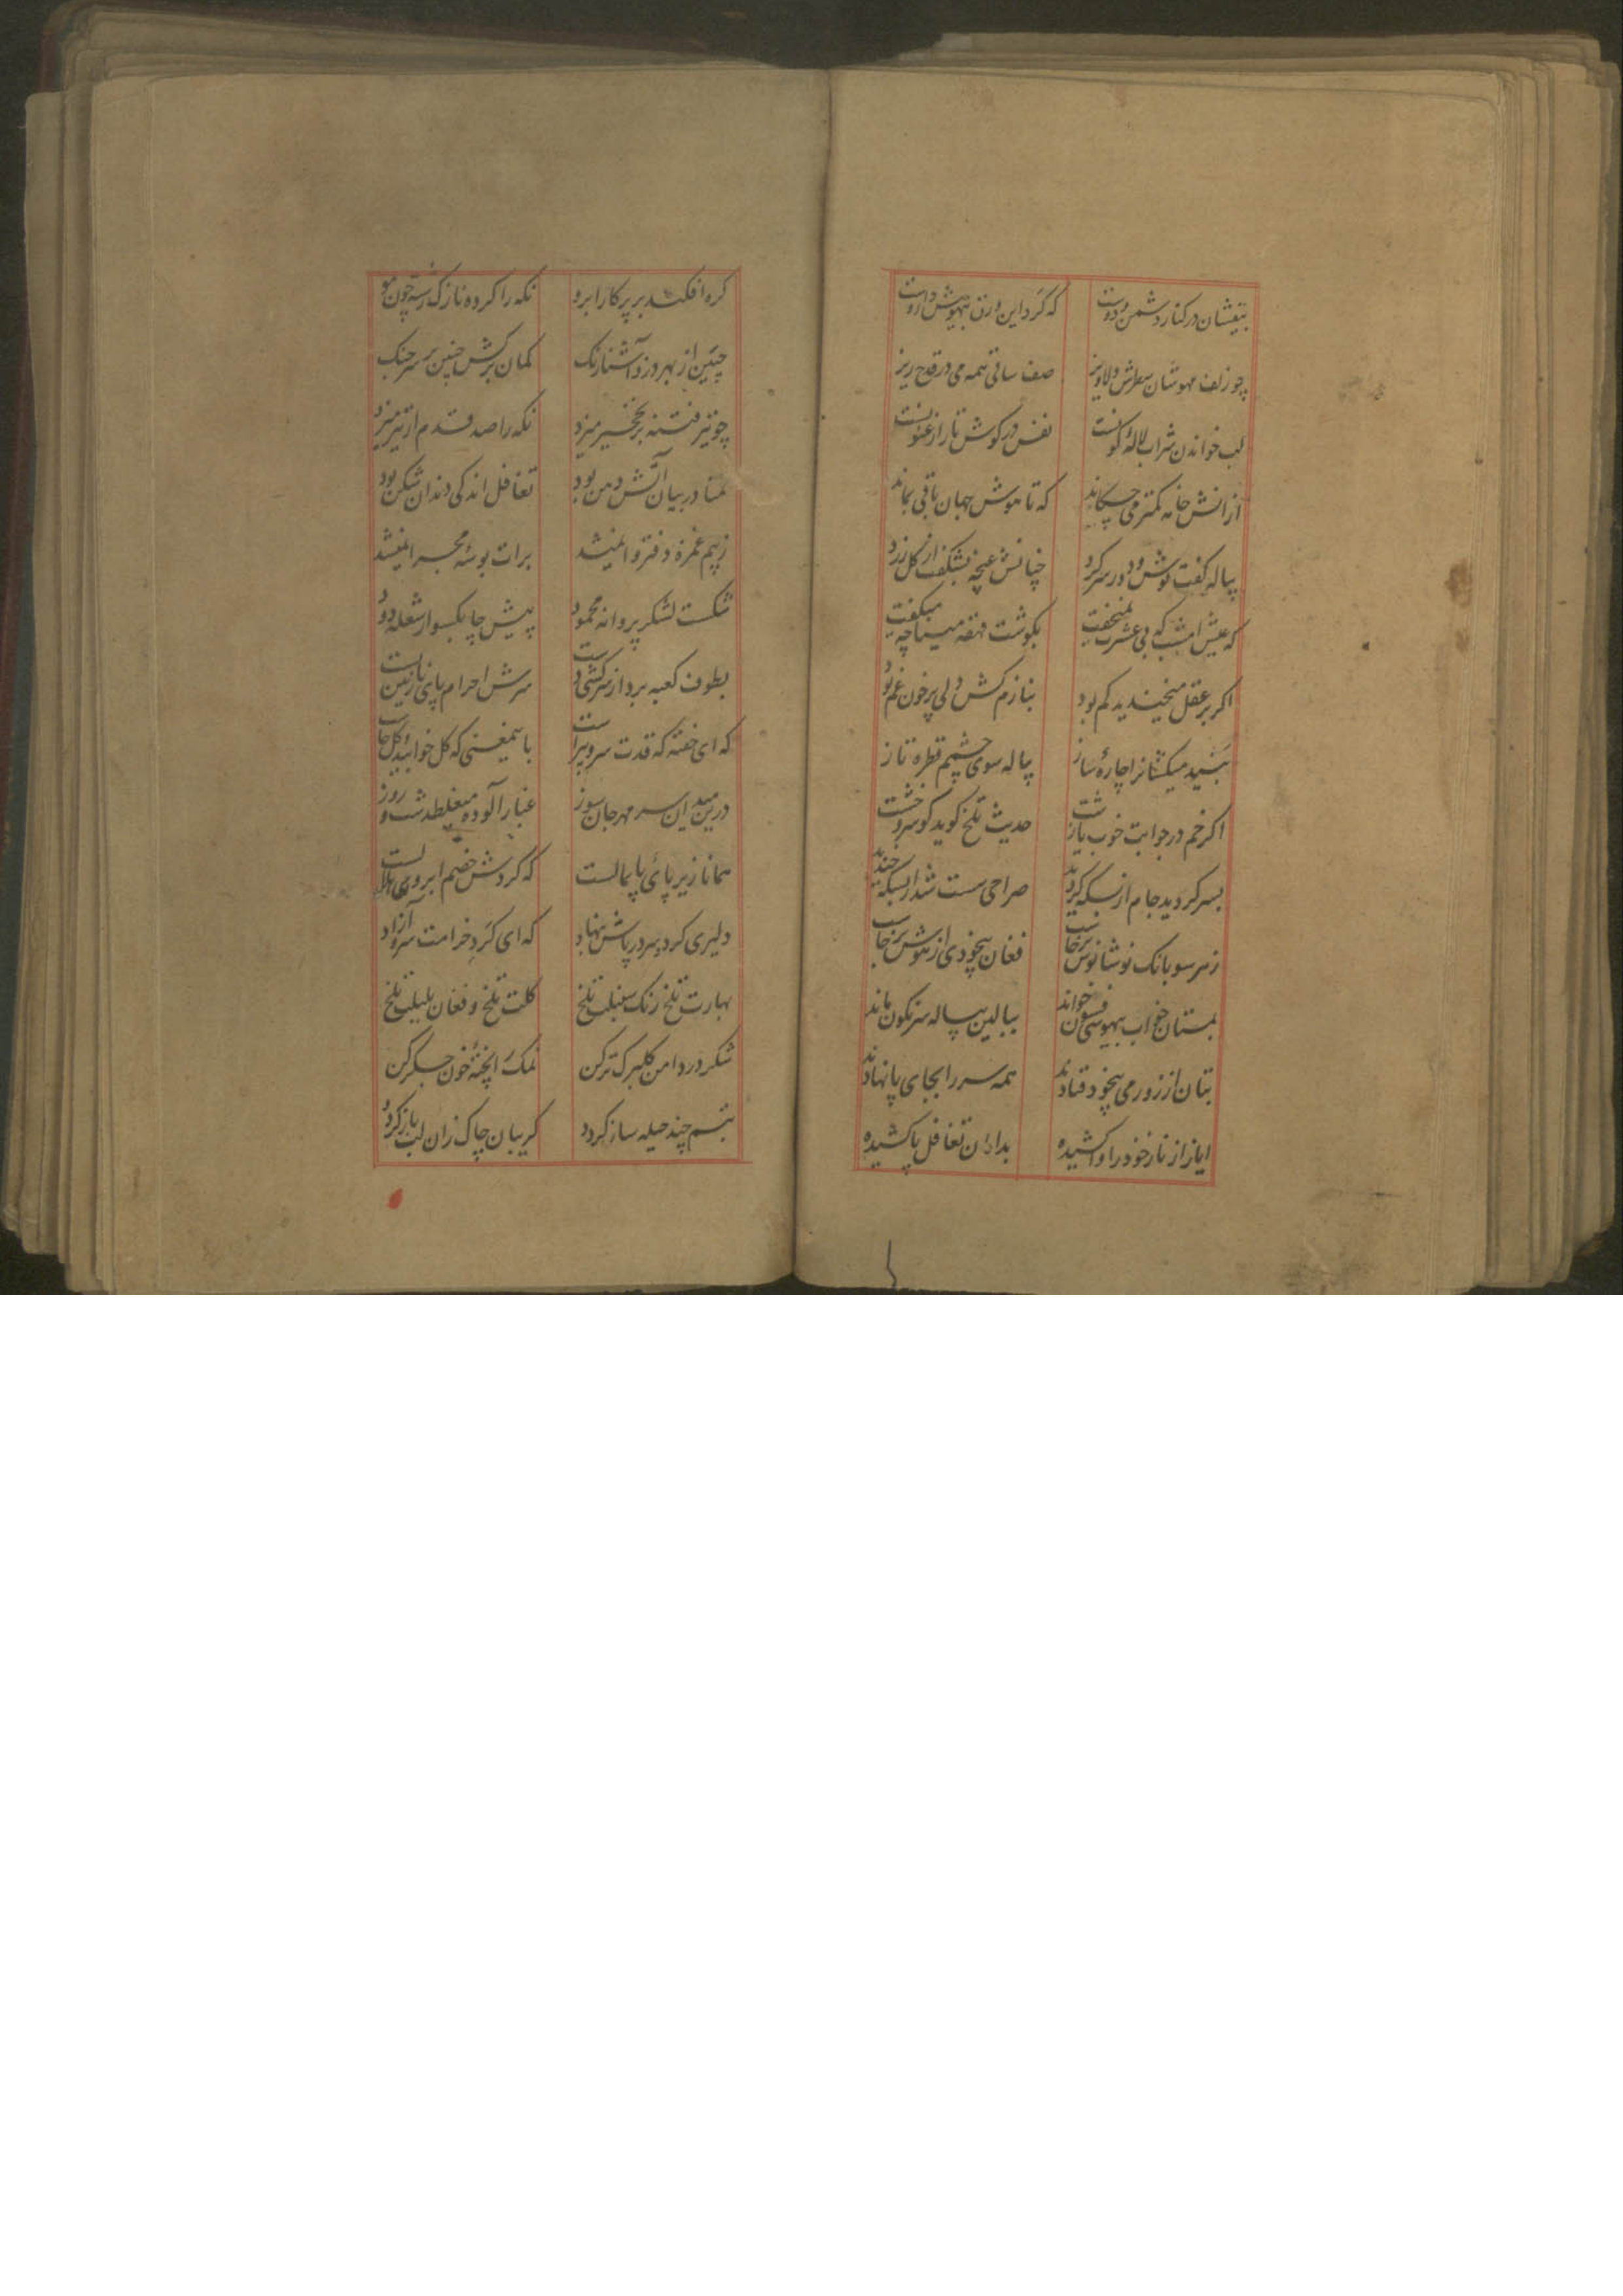 بیفشان در کنار دشمن و دوست که گرد این ورق بیهوش داروست
چو زلف مهوشان سطرش دلاویز صف ساقی همه می در قدح ریز
لب خواندن شراب لاله گونست نفس در گوش تار ارغنونست
ازانش خامه کمتر می چکاند که تا هوش جهان باقی بماند
پیاله گفت نوش و دور سر کرد چنانش غنچه بشکفت از گل زرد
که عیش امشب که بی عشرت نمیخفت بگوشت قهقه مینا چه میگفت
اگر بر عقل میخندید کم بود بنازم کش دلی پر خون غم بود
ببنید میکشانرا چاره ساز پیاله سوی چشمم قطره تاز
اگر خم در جوابت خوب یا زشت حدیث تلخ گوید گو سر و خشت
بسر گردید جام از بسکه گردید صراحی مست شد از بسکه خندید
ز هر سو بانک نوشانوش برخاست فغان بیخودی از هوش برخاست
بمستان خواب بیهوشی فسون خواند ببالین پیاله سرنگون ماند
بتان از زور می بیخود فتادند همه سر را بجای پا نهادند
ایاز از ناز خود را واکشیده بدامان تغافل پا کشیده
گره افکند بر پرکار ابرو نگه را کرده نازک رشته چون مو
چنین از بهر دزد آشنا رنگ کمان برکش چنین بر سر جنگ
چو تیر فتنه بر نخچیر میزد نگه را صد قدم از تیر میزد
تمنا در بیان آتش دهن بود تغافل اندکی دندان شکن بود
ز بیم غمزه دفتر وا نمیشد برات بوسه مجرا نمیشد
شکست لشکر پروانه محمود به پیش چابکسوار شعله دود
بطوف کعبه برد از سرکشی دست سرش احرام پای نازنین بست
که ای خفته که قدت سرو پیراست باینمعنی که گل خوابید و گل خاست
درین میدان سر مهر جان سوز غبار آلوده میغلطد شب و روز
همانا زیر پائی پایمالست که گردش خصم ابروی هلالست
دلیری کرد و سر در پاش بنهاد که ای گرد خرامت سرو آزاد
بهارت تلخ رنک سنبلت تلخ گلت تلخ و فغان بلبلت تلخ
شکر در دامن گلبرگ تر کن نمک را پخته خون جگر کن
تبسم چند حیله ساز گردد گریبان چاک زان لب باز گردد